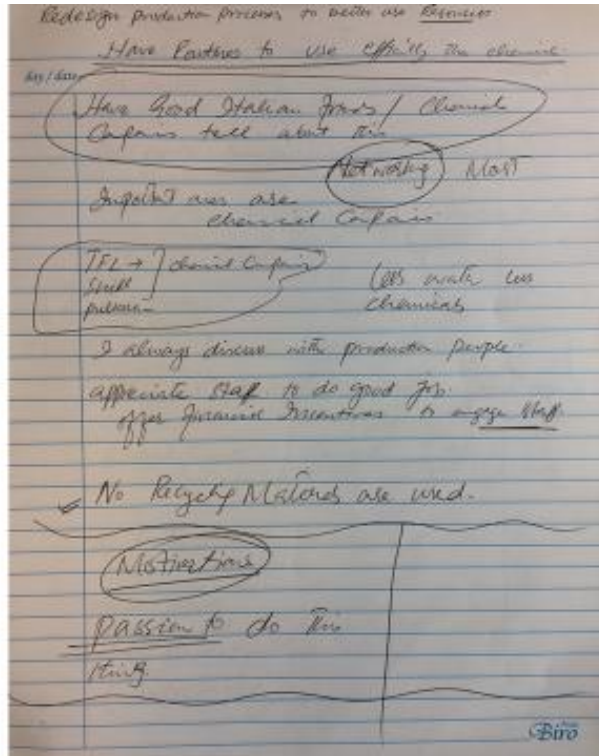 Redesign production processes to better use Resources
Have Routines to use the chemical
day / date
Have Good Italian friends / Chemical
tell about this
Networking Most
are
chemical
TFL →
chemical
Less water less
chemicals
I always discuss with production people.
appreciate staff to do good job.
offer financial Incentives to engage staff.
No Recycling Materials are used.
Motivations
passion to do this
thing.
Biro